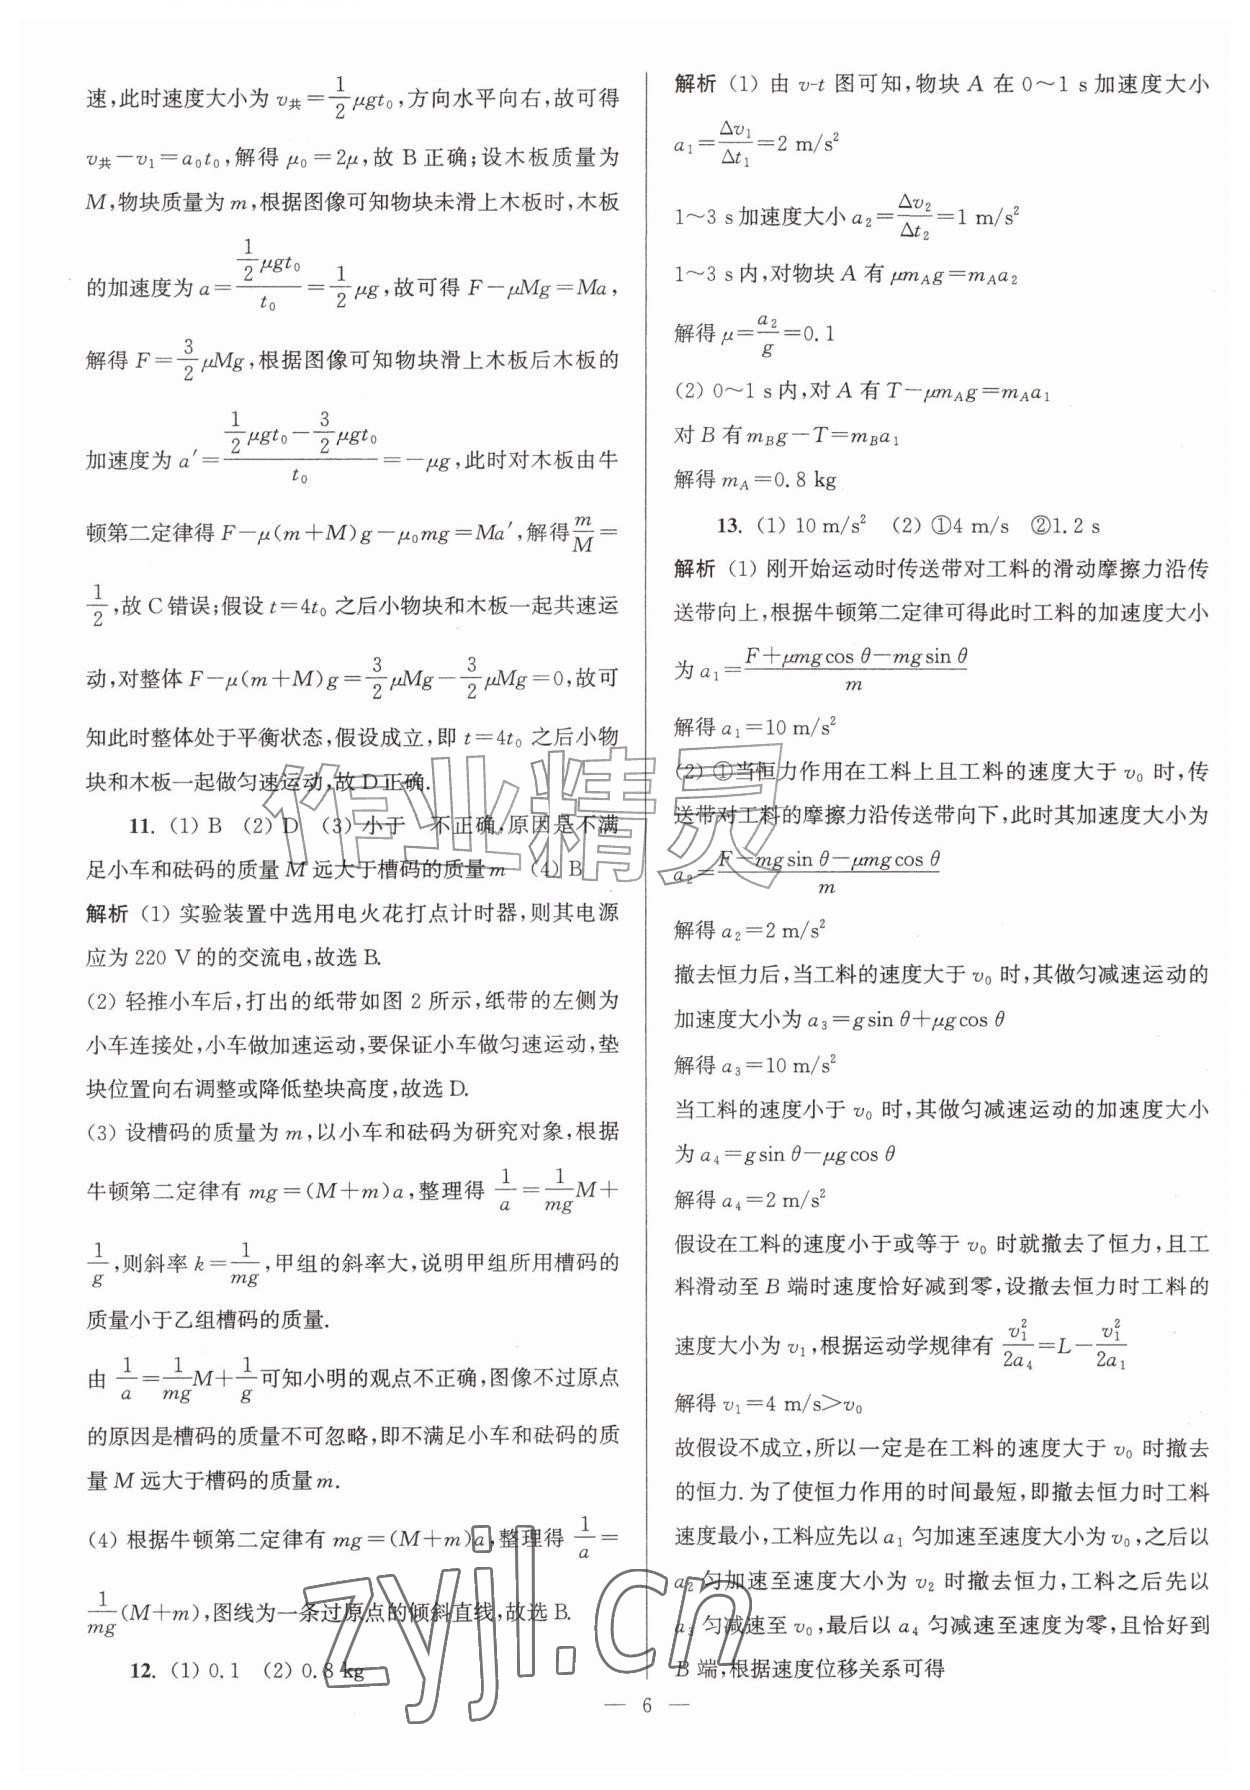 速,此时速度大小为 v共=1/2 μgt₀,方向水平向右,故可得
v共-v₁=a₀t₀,解得 μ₀=2μ,故 B 正确;设木板质量为
M,物块质量为 m,根据图像可知物块未滑上木板时,木板
的加速度为 a=(1/2 μgt₀)/t₀=1/2 μg,故可得 F-μMg=Ma,
解得 F=3/2 μMg,根据图像可知物块滑上木板后木板的
加速度为 a′=(1/2 μgt₀-3/2 μgt₀)/t₀=-μg,此时对木板由牛
顿第二定律得 F-μ(m+M)g-μ₀mg=Ma′,解得m/M=
1/2,故 C 错误;假设 t=4t₀ 之后小物块和木板一起共速运
动,对整体 F-μ(m+M)g=3/2 μMg-3/2 μMg=0,故可
知此时整体处于平衡状态,假设成立,即 t=4t₀ 之后小物
块和木板一起做匀速运动,故 D 正确.
11. (1) B (2) D (3) 小于 不正确,原因是不满
足小车和砝码的质量 M 远大于槽码的质量 m (4) B
解析 (1) 实验装置中选用电火花打点计时器,则其电源
应为 220 V 的的交流电,故选 B.
(2) 轻推小车后,打出的纸带如图 2 所示,纸带的左侧为
小车连接处,小车做加速运动,要保证小车做匀速运动,垫
块位置向右调整或降低垫块高度,故选 D.
(3) 设槽码的质量为 m,以小车和砝码为研究对象,根据
牛顿第二定律有 mg=(M+m)a,整理得 1/a=1/mg M+
1/g,则斜率 k=1/mg,甲组的斜率大,说明甲组所用槽码的
质量小于乙组槽码的质量.
由 1/a=1/mg M+1/g可知小明的观点不正确,图像不过原点
的原因是槽码的质量不可忽略,即不满足小车和砝码的质
量 M 远大于槽码的质量 m.
(4) 根据牛顿第二定律有 mg=(M+m)a,整理得 1/a=
1/mg(M+m),图线为一条过原点的倾斜直线,故选 B.
12. (1) 0.1 (2) 0.8 kg
解析 (1) 由 v-t 图可知,物块 A 在 0～1 s 加速度大小
a₁=Δv₁/Δt₁=2 m/s²
1～3 s加速度大小 a₂=Δv₂/Δt₂=1 m/s²
1～3 s内,对物块 A 有 μm_Ag=m_Aa₂
解得 μ=a₂/g=0.1
(2) 0～1 s内,对 A 有 T-μm_Ag=m_Aa₁
对 B 有 m_Bg-T=m_Ba₁
解得 m_A=0.8 kg
13. (1) 10 m/s² (2) ①4 m/s ②1.2 s
解析 (1) 刚开始运动时传送带对工料的滑动摩擦力沿传
送带向上,根据牛顿第二定律可得此时工料的加速度大小
为 a₁=(F+μmgcos θ-mgsin θ)/m
解得 a₁=10 m/s²
(2) ①当恒力作用在工料上且工料的速度大于 v₀ 时,传
送带对工料的摩擦力沿传送带向下,此时其加速度大小为
a₂=(F-mgsin θ-μmgcos θ)/m
解得 a₂=2 m/s²
撤去恒力后,当工料的速度大于 v₀ 时,其做匀减速运动的
加速度大小为 a₃=gsin θ+μgcos θ
解得 a₃=10 m/s²
当工料的速度小于 v₀ 时,其做匀减速运动的加速度大小
为 a₄=gsin θ-μgcos θ
解得 a₄=2 m/s²
假设在工料的速度小于或等于 v₀ 时就撤去了恒力,且工
料滑动至 B 端时速度恰好减到零,设撤去恒力时工料的
速度大小为 v₁,根据运动学规律有 v₁²/2a₄=L-v₁²/2a₁
解得 v₁=4 m/s>v₀
故假设不成立,所以一定是在工料的速度大于 v₀ 时撤去
的恒力.为了使恒力作用的时间最短,即撤去恒力时工料
速度最小,工料应先以 a₁ 匀加速至速度大小为 v₀,之后以
a₂ 匀加速至速度大小为 v₂ 时撤去恒力,工料之后先以
a₃ 匀减速至 v₀,最后以 a₄ 匀减速至速度为零,且恰好到
B 端,根据速度位移关系可得
— 6 —
作业精灵
zyjl.cn